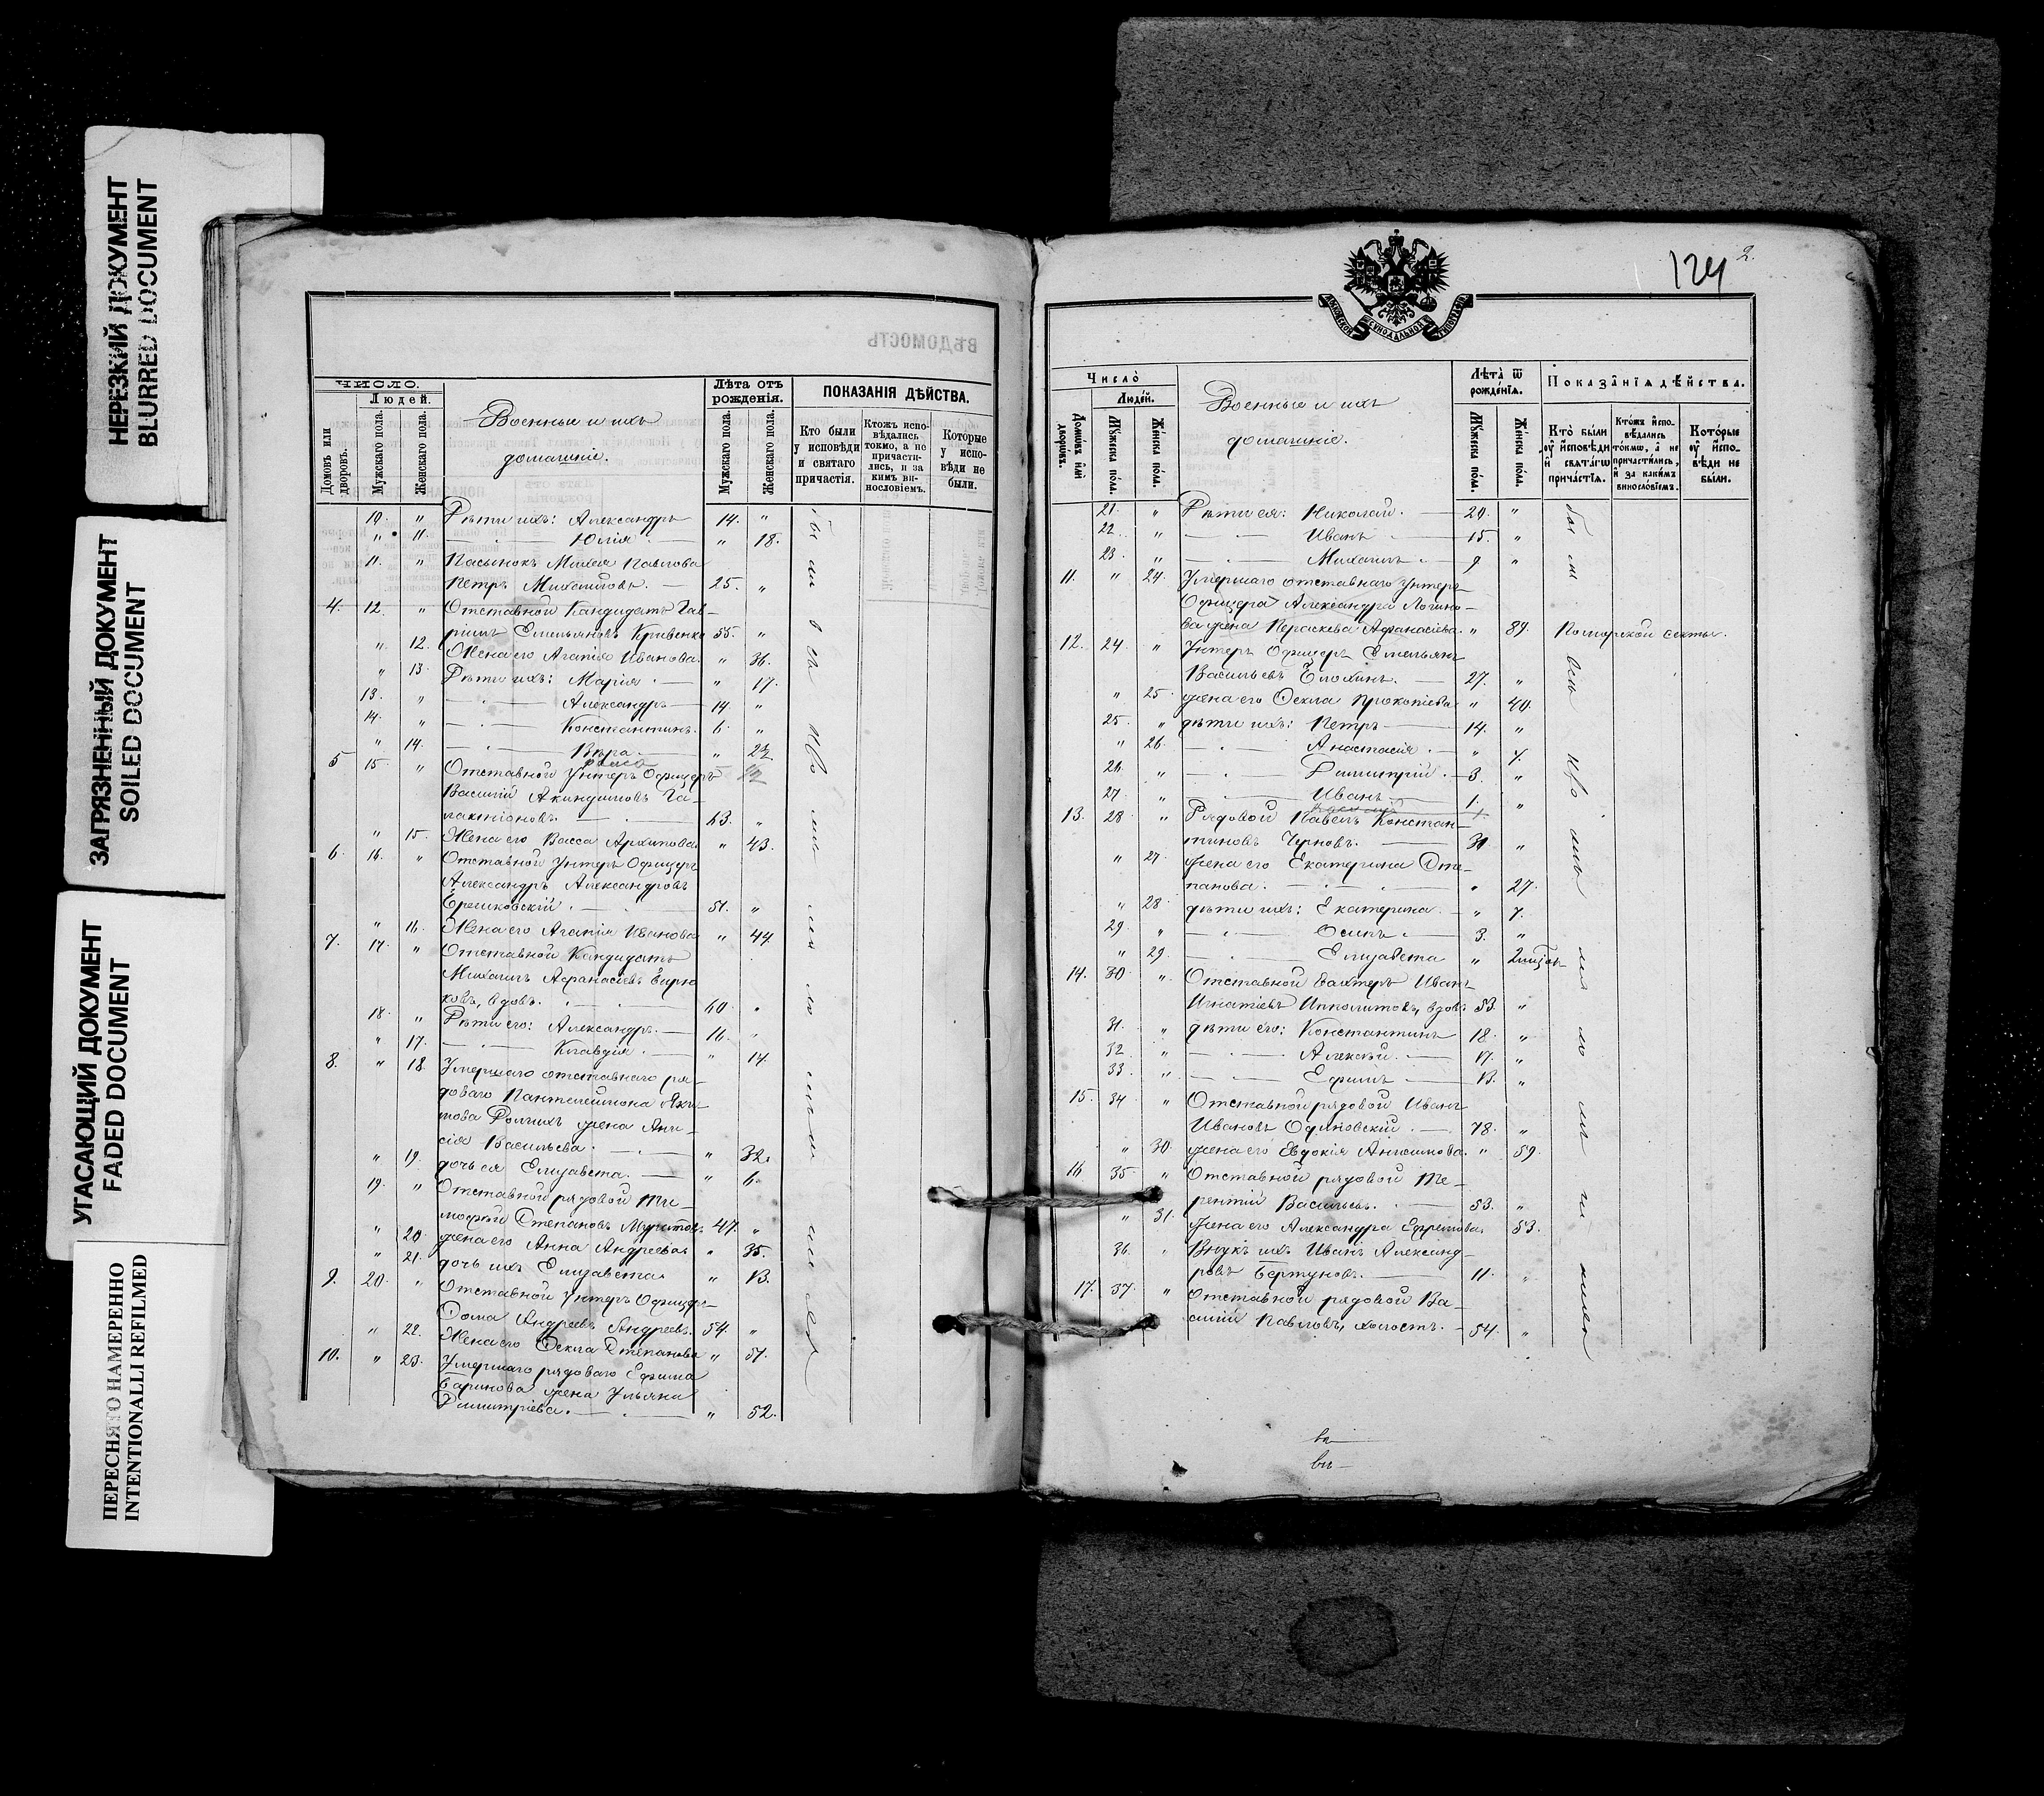 НЕРЕЗКИЙ ДОКУМЕНТ
BLURRED DOCUMENT
ЗАГРЯЗНЕННЫЙ ДОКУМЕНТ
SOILED DOCUMENT
УГАСАЮЩИЙ ДОКУМЕНТ
FADED DOCUMENT
ПЕРЕСНЯТО НАМЕРЕННО
INTENTIONALLI REFILMED
ВѢДОМОСТЬ
ЧИСЛО.
Людей.
Домовъ или дворовъ.
Мужскаго пола.
Женскаго пола.
Военные и ихъ
домашніе.
Лѣта отъ
рожденія.
Мужскаго пола.
Женскаго пола.
ПОКАЗАНІЯ ДѢЙСТВА.
Кто были
у исповѣди
и святаго
причастія.
Ктожъ испо-
вѣдались
токмо, а не
причасти-
лись, и за
кимъ ви-
нословіемъ.
Которые
у испо-
вѣди не
были.
10. " Дѣти ихъ: Александръ 14. "
" 11. Юлія " 18.
11. " Пасынокъ Михея Павлова
Петръ Михайловъ. 25. "
4. 12. " Отставной Кандидатъ Гав-
ріилъ Емельяновъ Кривенко 55. "
" 12. Жена его Агапія Иванова. " 36.
" 13. Дѣти ихъ: Марія. " 17.
13. " Александръ 14. "
14. " Константинъ. 6. "
" 14. Вѣра. "
5 15. " Отставной Унтеръ Офицеръ
Василій Акиндиновъ Га-
лактіоновъ. 63. "
" 15. Жена его Васса Архипова " 43.
6. 16. " Отставной Унтеръ Офицеръ
Александръ Александровъ
51. "
" 16. Жена его Агапія Иванова " 44.
7. 17. " Отставной Кандидатъ
Михаилъ Афанасьевъ Бирю-
ковъ, вдовъ. 40 "
18. " Дѣти его: Александръ. 16. "
" 17. Клавдія. " 14.
8. " 18. Умершаго отставнаго ря-
доваго Пантелеймона
жена Ани-
сія Васильева. " 32.
" 19. дочь ея Елизавета. " 6.
19. " Отставной рядовой Ти-
мофей Степановъ 47. "
" 20. жена его Анна Андреева " 35.
" 21. дочь ихъ Елизавета. " 13.
9. 20. " Отставной Унтеръ Офицеръ
Ѳома Андреевъ Андреевъ. 54. "
" 22. Жена его Ѳекла Степанова " 51.
10. " 23. Умершаго рядоваго Ефима
Баринова жена Ульяна
Димитріева. " 52.
МОСКОВСКОЙ СѴНОДАЛЬНОЙ ТИПОГРАФІИ
124
2.
Число
Людей.
Домѡвъ или дворѡвъ.
Мꙋжеска пола.
Женска пола.
Военные и ихъ
домашніе.
Лѣта ѿ
рожденія.
Мꙋжеска пола.
Женска пола.
Показанія дѣйства.
Кто были
оу исповѣди
и свѧтагѡ
причастїѧ.
Ктожъ испо-
вѣдались
токмѡ, а не
причастились,
и за какимъ
винословїемъ.
Которые
оу испо-
вѣди не
были.
21. " Дѣти ея: Николай. 20. "
22. " Иванъ 15. "
23. " Михаилъ 9 "
11. " 24. Умершаго отставнаго унтеръ
Офицера Александра Логино-
ва жена Параскева Афанасіева. " 89. Поморской секты.
12. 24. " Унтеръ Офицеръ Емельянъ
Васильевъ Блохинъ. 27. "
" 25 жена его Ѳекла Прокопіева " 40.
25. " дѣти ихъ: Петръ 14. "
" 26. Анастасія. " 7.
26. " Димитрій. 3. "
27. " Иванъ 1. "
13. 28 " Рядовой Павелъ Констан-
тиновъ Черновъ. 31 "
" 27. жена его Екатерина Сте-
панова. " 27.
" 28. дѣти ихъ: Екатерина. " 7.
29 " Осипъ 3. "
" 29. Елизавета "
14. 30. " Отставной Вахтеръ Иванъ
Игнатіевъ Ипполитовъ, вдовъ 53. "
31. " дѣти его: Константинъ 18. "
32 " Алексѣй. 17. "
33. " Ефимъ 13. "
15. 34. " Отставной рядовой Иванъ
Ивановъ 78. "
" 30. жена его Евдокія Антонова. " 59.
16 35 " Отставной рядовой Те-
рентій Васильевъ. 53. "
" 31. жена его Александра Ефремова 53.
36. " Внукъ ихъ Иванъ Александ-
ровъ 11. "
17. 37. " Отставной рядовой Ва-
силій Павловъ, холостъ. 54. "